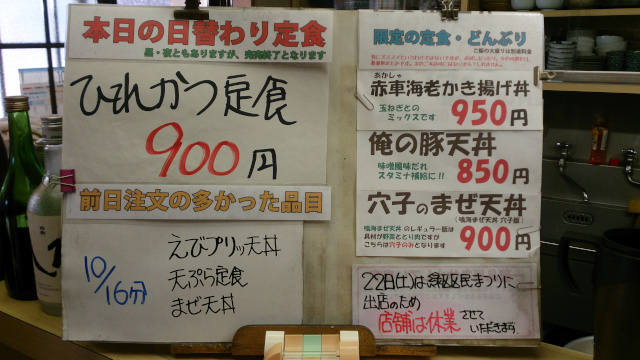 本日の日替わり定食
昼・夜ともありますが、完売終了となります
ひれかつ定食
900円
前日注文の多かった品目
10/16分
えびプリッ天丼
天ぷら定食
まぜ天丼
限定の定食・どんぶり
ご飯の大盛りは別途料金
あかしゃ
赤車海老かき揚げ丼
玉ねぎとの
ミックスです
950円
俺の豚天丼
味噌風味だれ
スタミナ補給に!!
850円
穴子のまぜ天丼
(鳴海まぜ天丼 穴子版)
鳴海まぜ天丼 のレギュラー版は
具材が野菜ととり肉ですが
こちらは穴子のみとなります
900円
22日(土)は緑区区民まつりに
出店のため
店舗は休業させて
いただきます